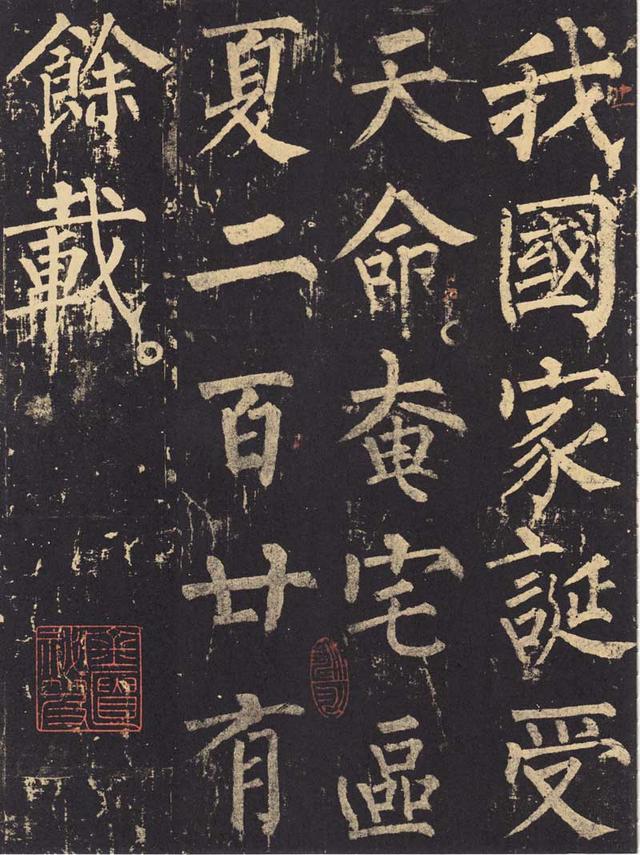 我國家誕受
天命。奄宅區
夏二百廿有
餘載。